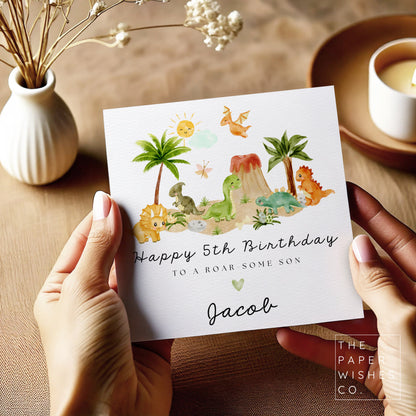 Happy 5th Birthday
TO A ROAR SOME SON
Jacob
THE
PAPER
WISHES
CO.